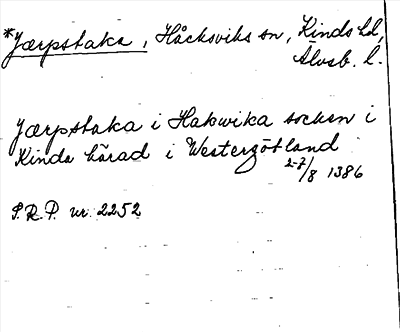 *Jærpstaka, Håcksviks sn, Kinds hd,
Älvsb. l.
Jærpstaka i Hakwika socken i
Kinda härad i Westergötland
2-7/8 1386
S.R.P. nr. 2252